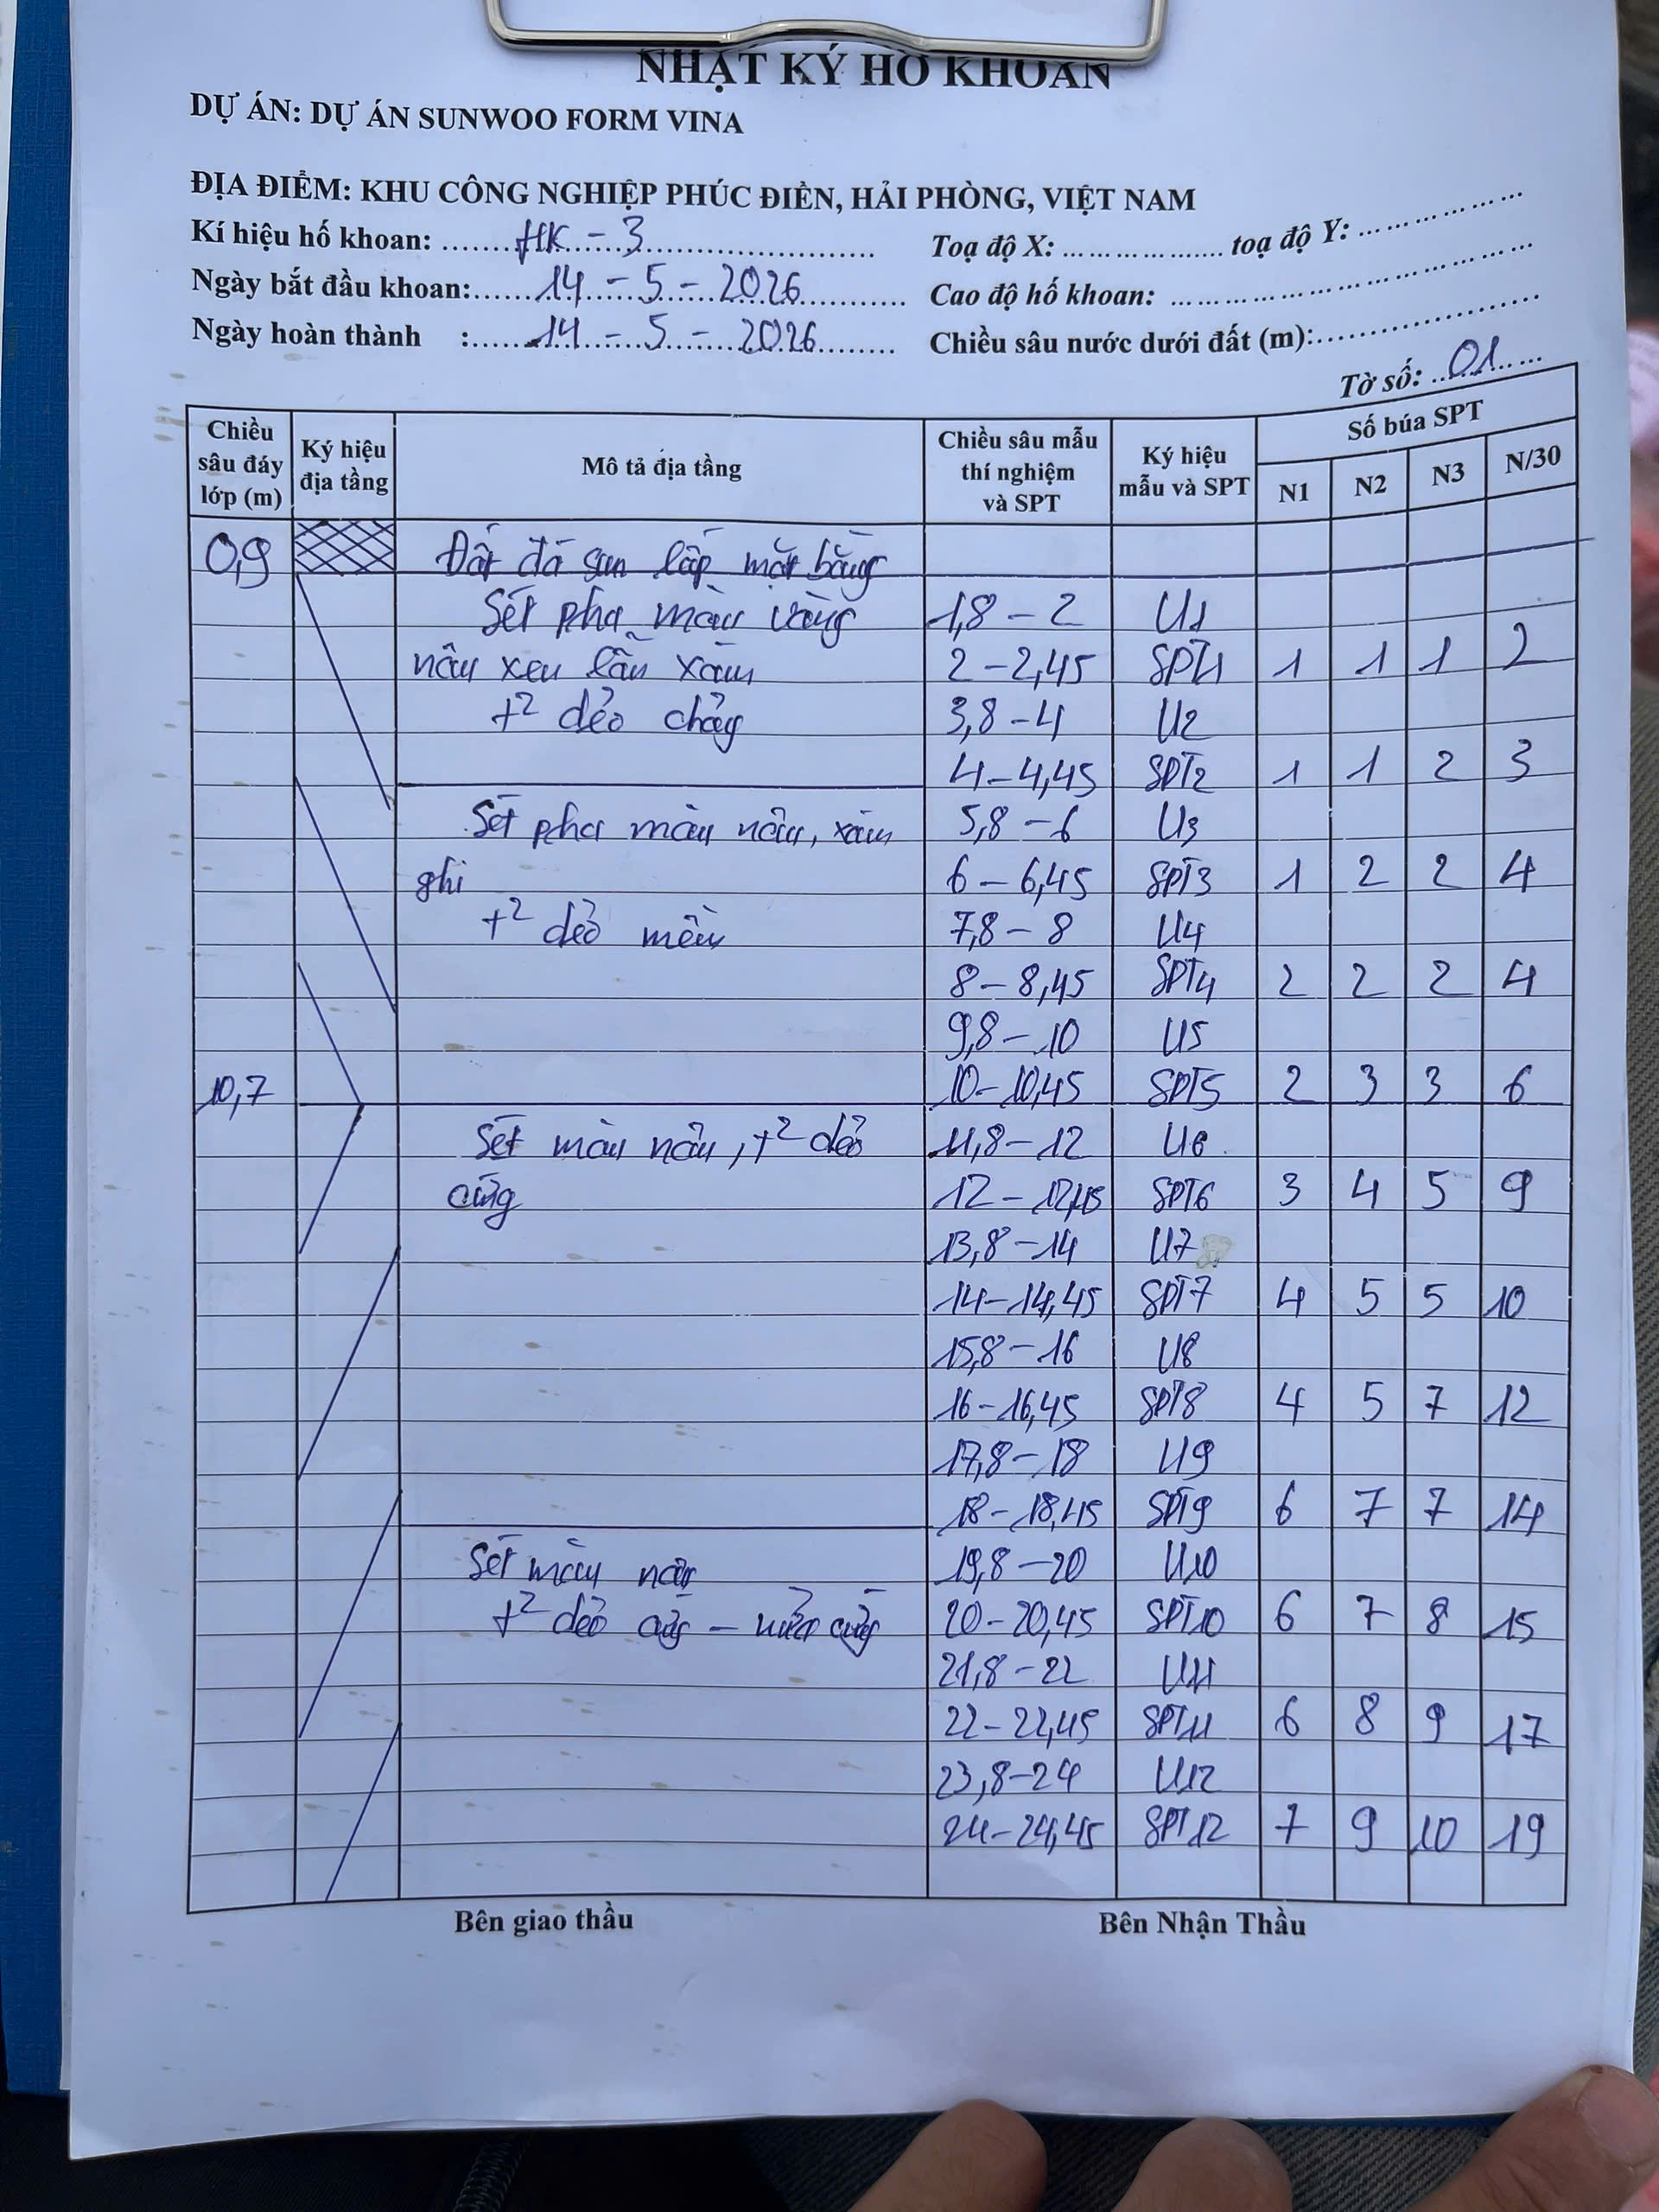 NHẬT KÝ HỐ KHOAN
DỰ ÁN: DỰ ÁN SUNWOO FORM VINA
ĐỊA ĐIỂM: KHU CÔNG NGHIỆP PHÚC ĐIỀN, HẢI PHÒNG, VIỆT NAM
Kí hiệu hố khoan: HK-3 Toạ độ X: toạ độ Y:
Ngày bắt đầu khoan: 14-5-2026 Cao độ hố khoan:
Ngày hoàn thành : 14-5-2026 Chiều sâu nước dưới đất (m):
Tờ số: 01
Chiều sâu đáy lớp (m) Ký hiệu địa tầng Mô tả địa tầng Chiều sâu mẫu thí nghiệm và SPT Ký hiệu mẫu và SPT Số búa SPT N1 N2 N3 N/30
0,9 Đất đá san lấp mặt bằng
Sét pha màu vàng 1,8-2 U1
nâu xen lẫn xám 2-2,45 SPT1 1 1 1 2
t² dẻo chảy 3,8-4 U2
4-4,45 SPT2 1 1 2 3
Sét pha màu nâu, xám 5,8-6 U3
ghi 6-6,45 SPT3 1 2 2 4
t² dẻo mềm 7,8-8 U4
8-8,45 SPT4 2 2 2 4
9,8-10 U5
10,7 10-10,45 SPT5 2 3 3 6
Sét màu nâu, t² dẻo 11,8-12 U6
cứng 12-12,45 SPT6 3 4 5 9
13,8-14 U7
14-14,45 SPT7 4 5 5 10
15,8-16 U8
16-16,45 SPT8 4 5 7 12
17,8-18 U9
18-18,45 SPT9 6 7 7 14
Sét màu nâu 19,8-20 U10
t² dẻo cứng - nửa cứng 20-20,45 SPT10 6 7 8 15
21,8-22 U11
22-22,45 SPT11 6 8 9 17
23,8-24 U12
24-24,45 SPT12 7 9 10 19
Bên giao thầu Bên Nhận Thầu